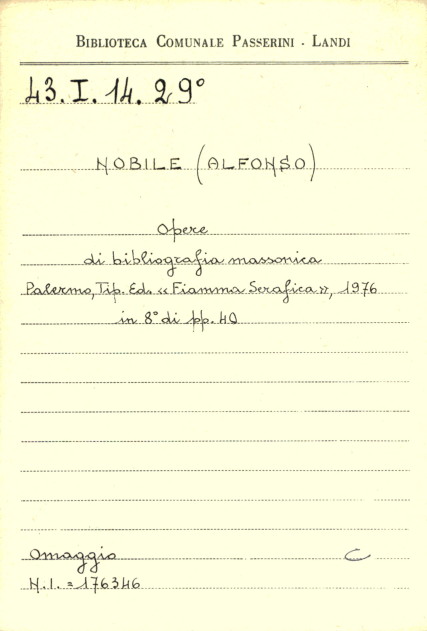 BIBLIOTECA COMUNALE PASSERINI - LANDI
43. I. 14. 29°
NOBILE (ALFONSO)
Opere
di bibliografia massonica
Palermo, Tip. Ed. « Fiamma Serafica », 1976
in 8° di pp. 40
Omaggio C
N.I. = 176346